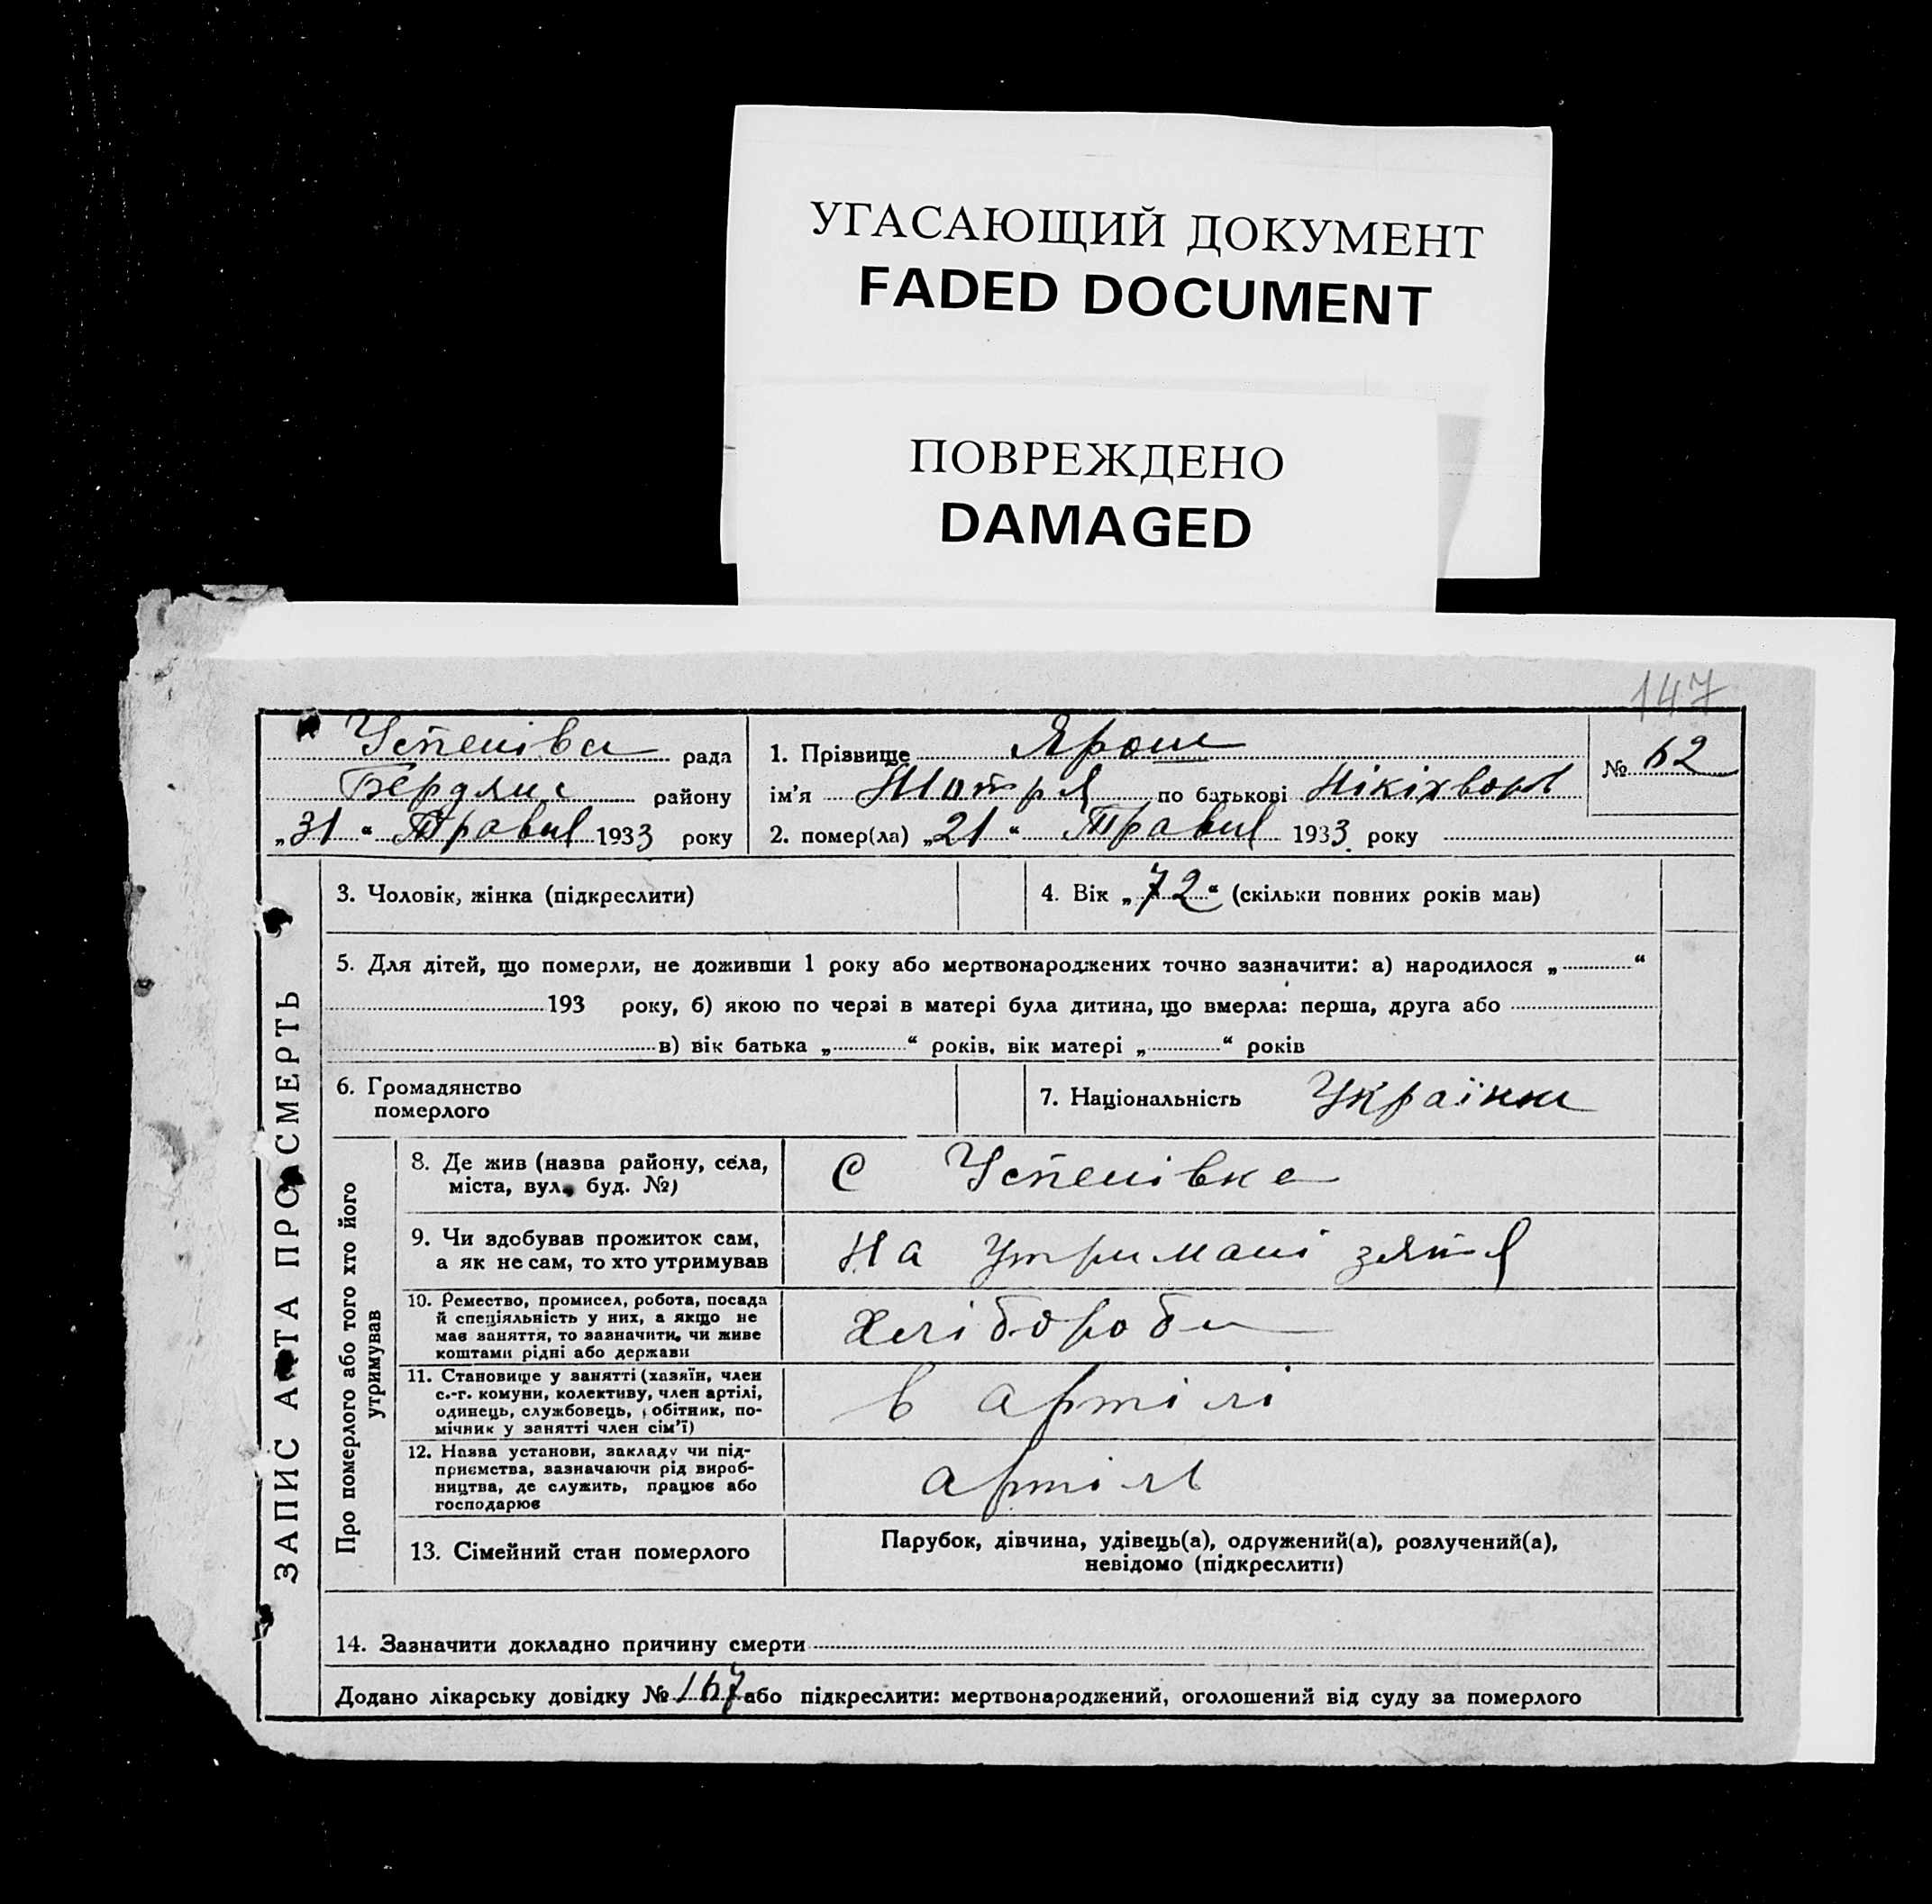 УГАСАЮЩИЙ ДОКУМЕНТ
FADED DOCUMENT
ПОВРЕЖДЕНО
DAMAGED
147
Успенівса рада
Бердянс району
„31“ Травня 1933 року
1. Прізвище Ярош
ім'я Мотря по батькові Нікіхвора
2. помер(ла) „21“ Травня 1933 року
№ 62
ЗАПИС АКТА ПРО СМЕРТЬ
3. Чоловік, жінка (підкреслити)
4. Вік „72“ (скільки повних років мав)
5. Для дітей, що померли, не доживши 1 року або мертвонароджених точно зазначити: а) народилося „ “
193 року, б) якою по черзі в матері була дитина, що вмерла: перша, друга або
в) вік батька „ “ років, вік матері „ “ років
6. Громадянство
померлого
7. Національність Українка
Про померлого або того хто його
утримував
8. Де жив (назва району, села,
міста, вул., буд. №)
с Успенівка
9. Чи здобував прожиток сам,
а як не сам, то хто утримував
На утримані зятя
10. Ремество, промисел, робота, посада
й спеціяльність у них, а якщо не
має заняття, то зазначити, чи живе
коштами рідні або держави
Хлібороби
11. Становище у занятті (хазяїн, член
с.-г. комуни, колективу, член артілі,
одинець, службовець, обітник, по-
мічник у занятті член сім'ї)
в артілі
12. Назва установи, закладу чи під-
приємства, зазначаючи рід вироб-
ництва, де служить, працює або
господарює
артіль
13. Сімейний стан померлого
Парубок, дівчина, удівець(а), одружений(а), розлучений(а),
невідомо (підкреслити)
14. Зазначити докладно причину смерти
Додано лікарську довідку № 167 або підкреслити: мертвонароджений, оголошений від суду за померлого